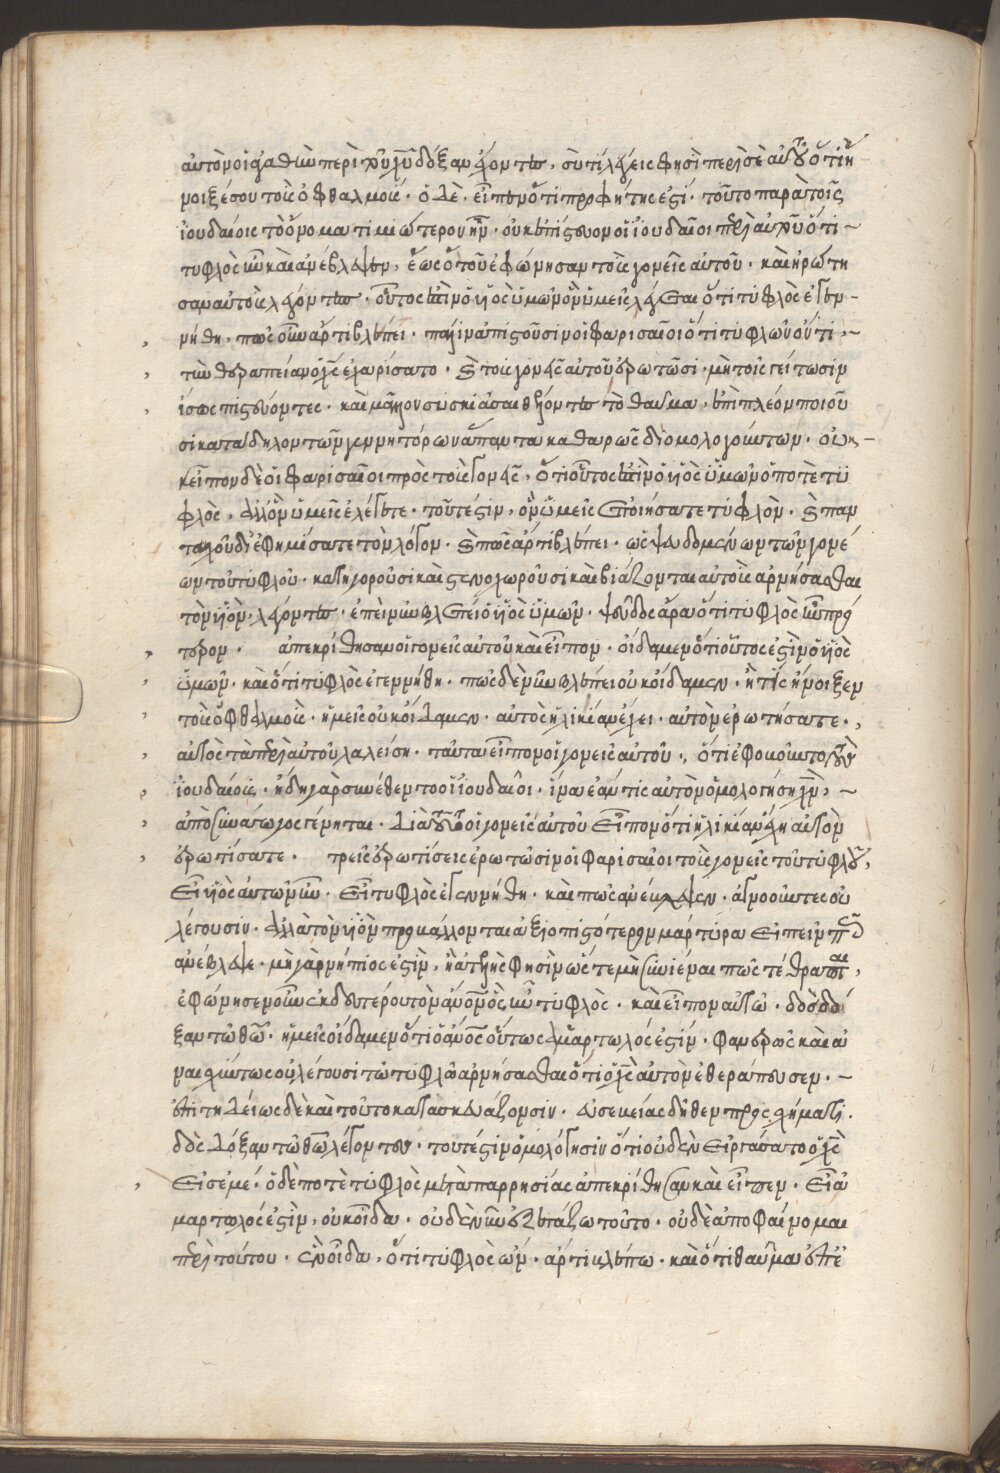 αὐτὸν οἱ ἀγαθὴν περὶ χυ δόξαν ἔχοντες, σὺ τί λέγεις φησὶ περὶ σὲ αὐτοῦ ὅτι ἤ
νοιξέ σου τοὺς ὀφθαλμούς. ὁ δὲ. εἶπεν ὅτι προφήτης ἐστί. τοῦτο παρὰ τοῖς
ἰουδαίοις τὸ ὄνομα τιμιώτερον ἦν. οὐκ ἐπίστευον οἱ ἰουδαῖοι περὶ αὐτοῦ ὅτι
τυφλὸς ἦν καὶ ἀνέβλεψεν, ἕως ὅτου ἐφώνησαν τοὺς γονεῖς αὐτοῦ. καὶ ἠρώτη
σαν αὐτοὺς λέγοντες. οὗτος ἐστὶν ὁ υἱὸς ὑμῶν ὃν ὑμεῖς λέγεται ὅτι τυφλὸς ἐγεν
νήθη, πῶς οὖν ἄρτι βλέπει. πάλιν ἀπιστοῦσιν οἱ φαρισαῖοι ὅτι τυφλῶν οὔτι
τὴν θεραπείαν ὁ χς ἐχαρίσατο. καὶ τοὺς γονεῖς αὐτοῦ ἐρωτῶσι. μὴ τοῖς γείτοσιν
ἴσως πιστεύοντες. καὶ μᾶλλον συσκιάσαι θέλοντες τὸ θαῦμα, ἐπὶ πλέον ποιοῦ
σι κατάδηλον τῶν γεννητόρων ἅπαντα καθαρῶς διομολογούντων. οὐκ
κεῖπον δὲ οἱ φαρισαῖοι πρὸς τοὺς γονεῖς, ὅτι οὗτος ἐστὶν ὁ υἱὸς ὑμῶν ὁ ποτὲ τυ
φλὸς, ἀλλ' ὃν ὑμεῖς ἐλέγετε. τουτέστιν, ὃν ὑμεῖς ἐποιήσατε τυφλὸν. καὶ παν
ταχοῦ διεφημίσατε τὸν λόγον. καὶ πῶς ἄρτι βλέπει. ὡς ψευδομένων τῶν γονέ
ων τοῦ τυφλοῦ. κατηγοροῦσι καὶ στενοχωροῦσι καὶ βιάζονται αὐτοὺς ἀρνήσασθαι
τὸν υἱὸν, λέγοντες. ἐπεὶ νῦν βλέπει ὁ υἱὸς ὑμῶν. ψεῦδος ἄρα ὅτι τυφλὸς ἦν πρό
τερον. ἀπεκρίθησαν οἱ γονεῖς αὐτοῦ καὶ εἶπον. οἴδαμεν ὅτι οὗτος ἐστὶν ὁ υἱὸς
ὑμῶν. καὶ ὅτι τυφλὸς ἐγεννήθη. πῶς δὲ νῦν βλέπει οὐκ οἴδαμεν. ἢ τίς ἤνοιξεν
τοὺς ὀφθαλμοὺς. ἡμεῖς οὐκ οἴδαμεν. αὐτὸς ἡλικίαν ἔχει. αὐτὸν ἐρωτήσατε.
αὐτὸς τὰ περὶ αὐτοῦ λαλείση. ταῦτα εἶπον οἱ γονεῖς αὐτοῦ, ὅτι ἐφοβοῦντο τοὺς
ἰουδαίους. ἤδη γὰρ συνέθεντο οἱ ἰουδαῖοι. ἵνα ἐάν τις αὐτὸν ὁμολογήση χν,
ἀποσυνάγωγος γένηται. διὰ τοῦτο οἱ γονεῖς αὐτοῦ εἶπον ὅτι ἡλικίαν ἔχη αὐτὸν
ἐρωτίσατε. τρεῖς ἐρωτίσεις ἐρωτῶσιν οἱ φαρισαῖοι τοὺς γονεῖς τοῦ τυφλοῦ,
εἰ υἱὸς αὐτῶν ἦν. εἰ τυφλὸς ἐγεννήθη. καὶ πῶς ἀνέβλεψεν. ἀγνοοῦντες οὐ
λέγουσιν. ἀλλὰ τὸν υἱὸν προβάλλονται ἀξιοπιστότερον μάρτυρα εἰπεῖν πῶς
ἀνέβλεψε. μὴ γὰρ νήπιος ἐστὶν, ἢ ἀτελὴς φησὶν ὥστε μὴ συνιέναι πῶς τεθεράπευται,
ἐφώνησεν οὖν ἐκ δευτέρου τὸν ἄνον ὃς ἦν τυφλὸς. καὶ εἶπον αὐτῷ. δὸς δό
ξαν τῷ θῶ. ἡμεῖς οἴδαμεν ὅτι ὁ ἄνος οὗτως ἁμαρτωλός ἐστίν. φανερῶς καὶ ἀ
ναισχύντως οὐ λέγουσι τῷ τυφλῷ ἀρνήσασθαι ὅτι ὁ χς αὐτὸν ἐθεράπευσεν.
ἐπιτηδείως δὲ καὶ τοῦτο κατασκευάζουσιν. εὐσεβείας δῆθεν προσχήματι.
δὸς δόξαν τῷ θῶ λέγοντες. τουτέστιν ὁμολόγησιν ὅτι οὐδὲν εἰργάσατο ὁ χς
εἰς ἐμέ. ὁ δὲ ποτὲ τυφλὸς μετὰ παρρησίας ἀπεκρίθη καὶ εἶπεν. εἰ ἁ
μαρτωλός ἐστὶν, οὐκ οἶδα. οὐδὲ νῦν ἐξετάζω τοῦτο. οὐδὲ ἀποφαίνομαι
περὶ τούτου. ἓν οἶδα, ὅτι τυφλὸς ὢν. ἄρτι βλέπω. καὶ ὅτι θαῦμα ἐπ' ἐ